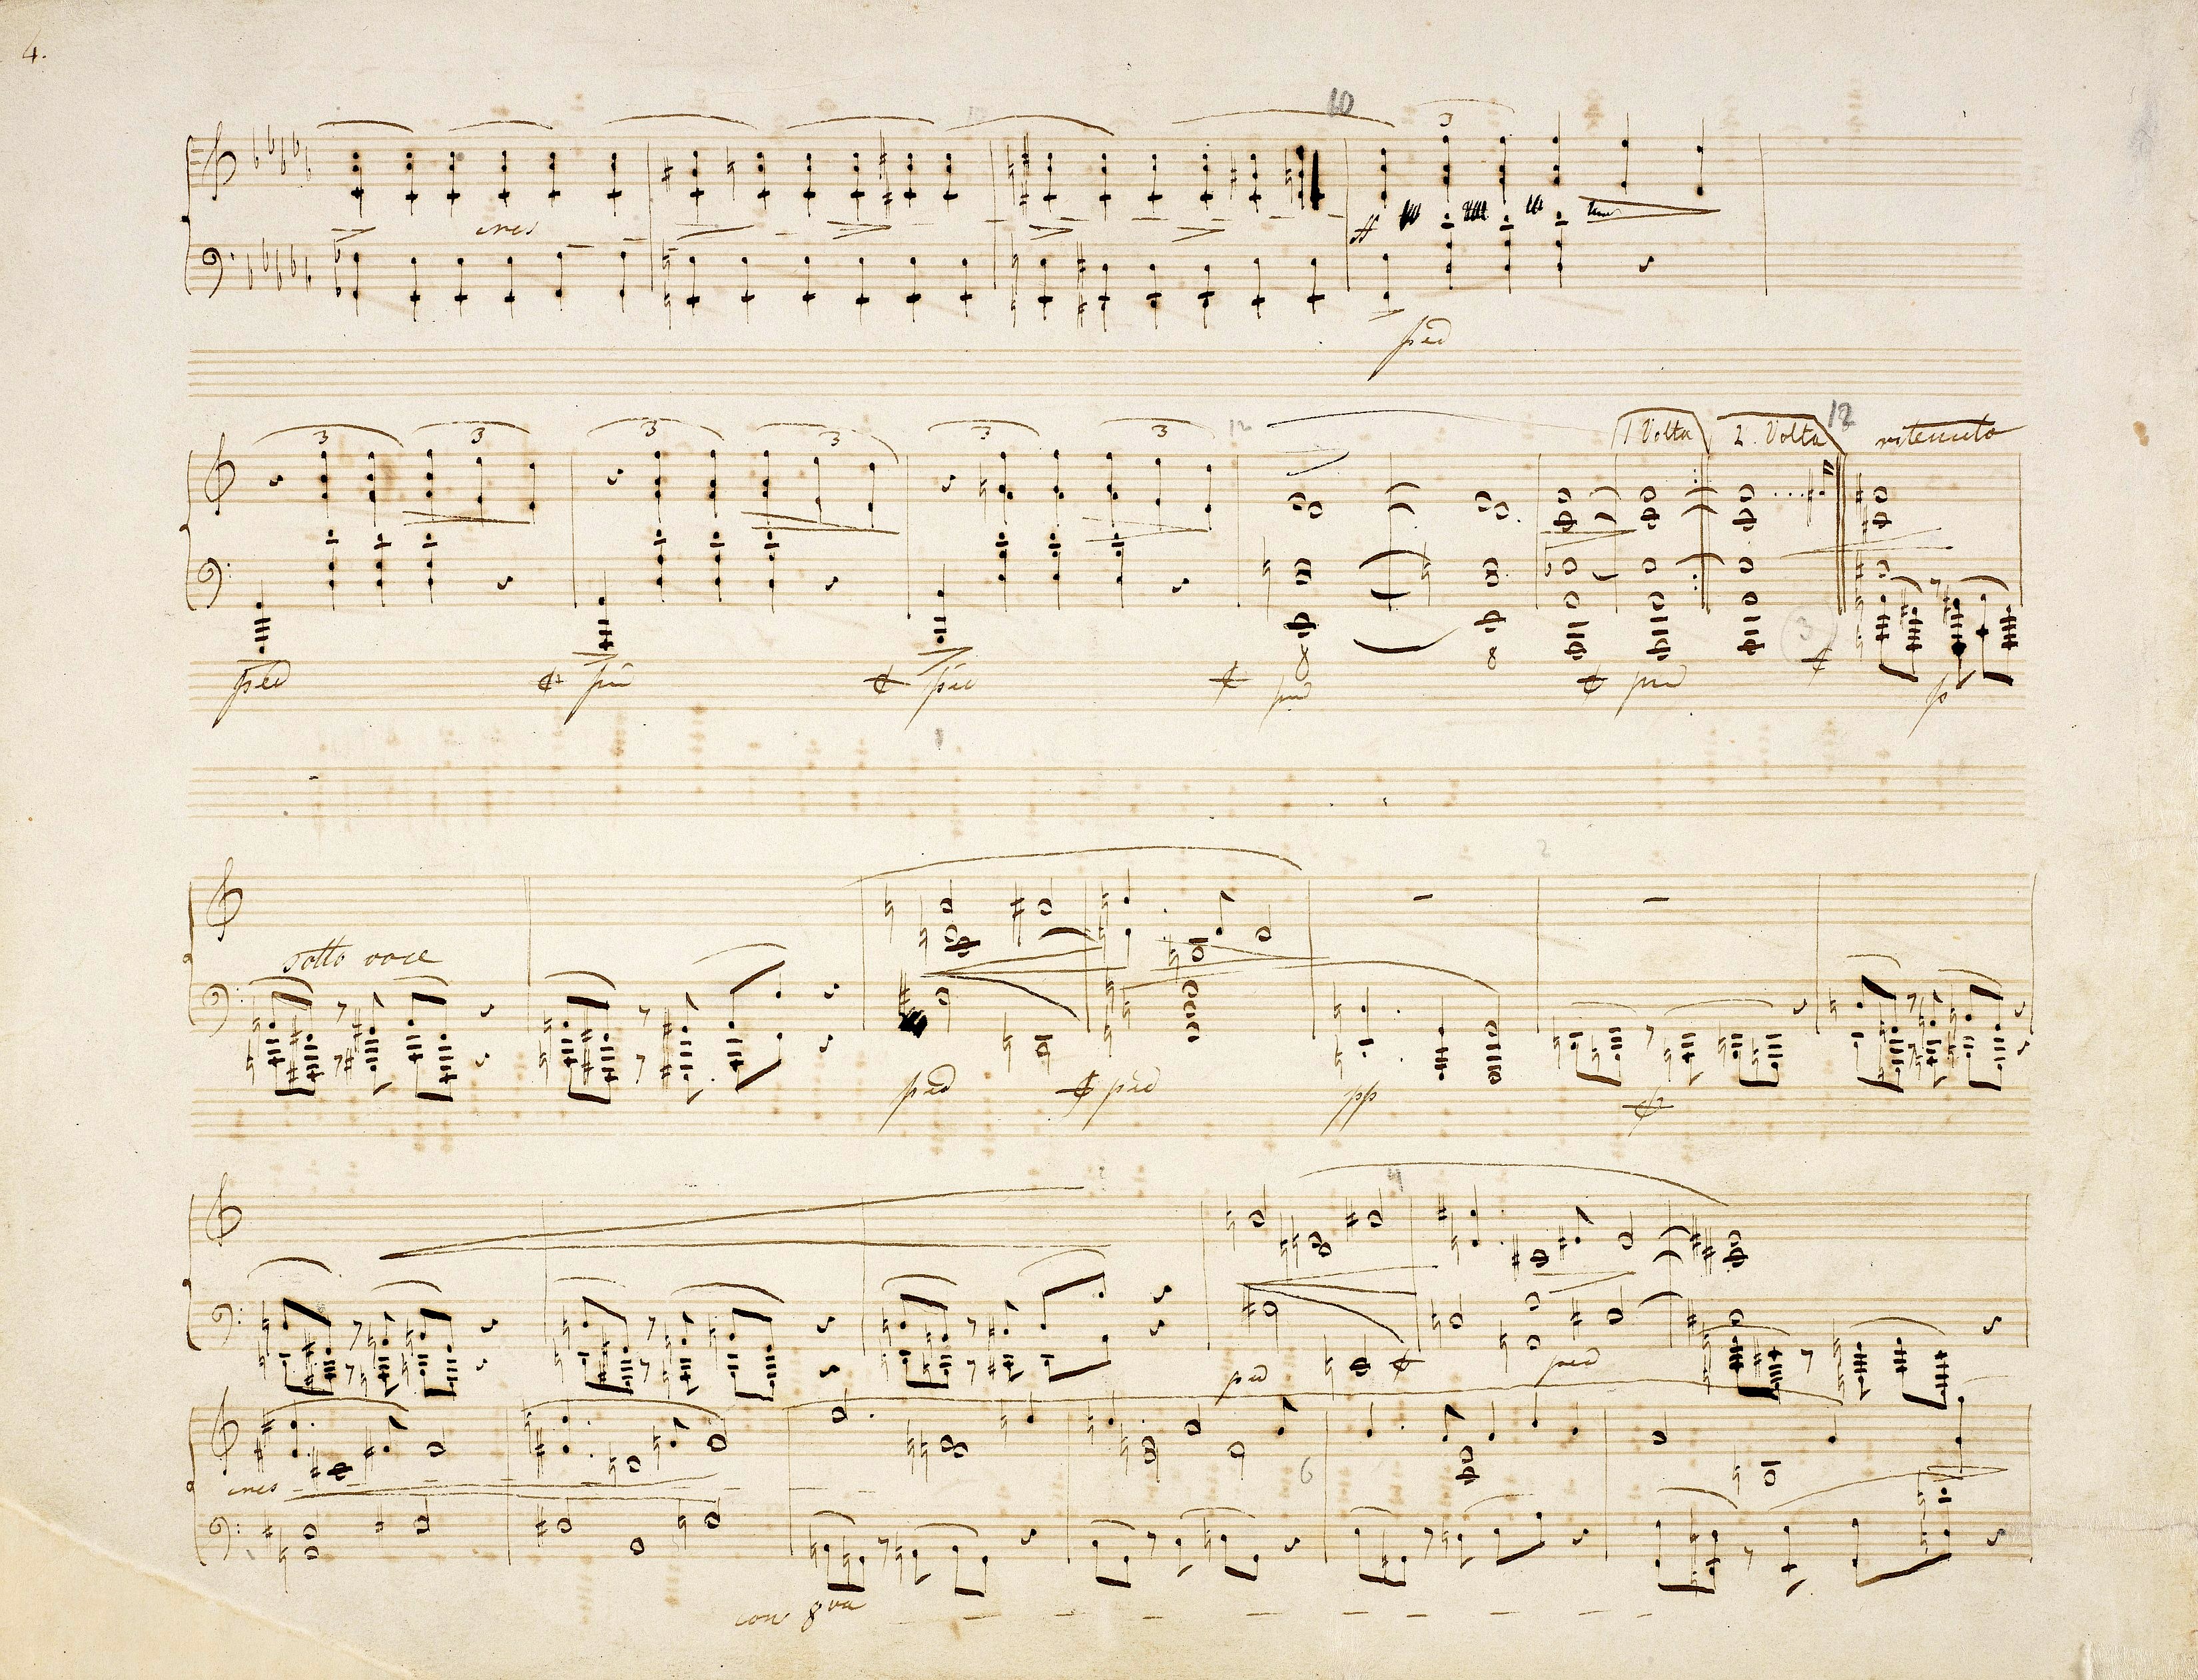 4.
10
3
cres
ff
ped
3 3 3 3 3 3 12 1 Volta 2. Volta 12 ritenuto
3
8 8
ped ped ped ped ped p
2
sotto voce
ped ped pp
4
ped ped
cres
6
con 8va